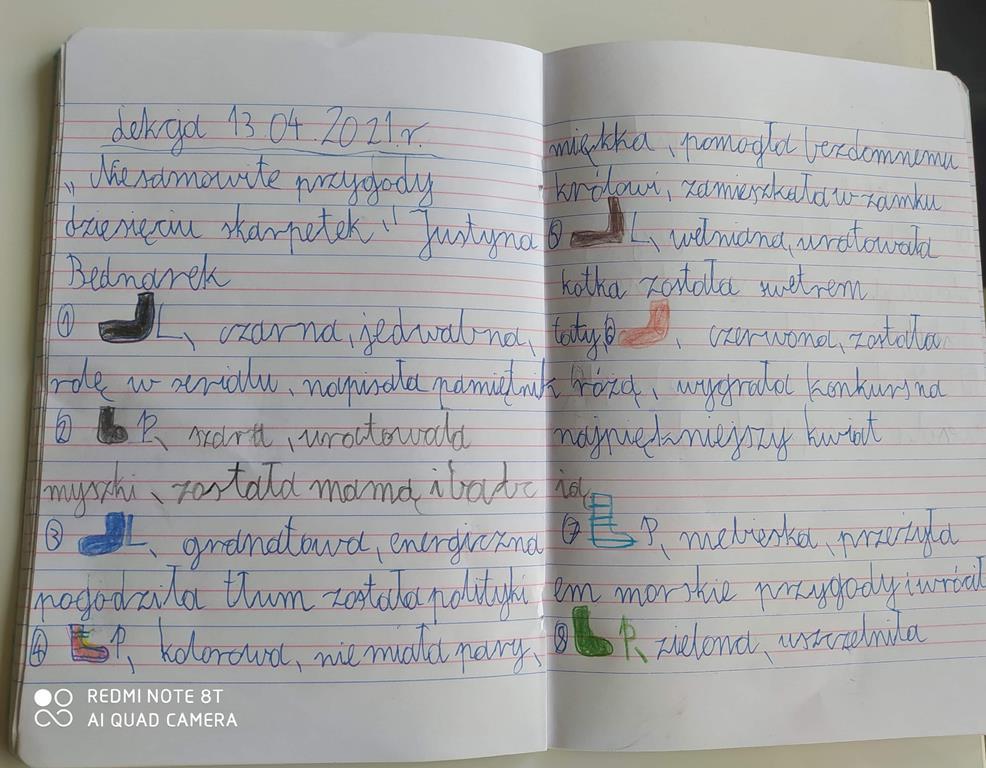 Lekcja 13.04.2021.r.
„Niesamowite przygody
dziesięciu skarpetek" Justyna
Bednarek
① L, czarna, jedwabna,
rolę w serialu, napisała pamiętnik
② P, szara, uratowała
myszki, została mamą i babc
③ L, granatowa, energiczna
pogodziła tłum została polityki
④ P, kolorowa, nie miała pary,
miękka, pomogła bezdomnemu
królowi, zamieszkała w zamku
⑤ L, wełniana, uratowała
kotka została swetrem
taty, ⑥, czerwona, została
różą, wygrała konkurs na
najpiękniejszy kwiat
ią
⑦ P, niebieska, przeżyła
em morskie przygody i wrócił
⑧ P, zielona, uszczelniła
REDMI NOTE 8T
AI QUAD CAMERA